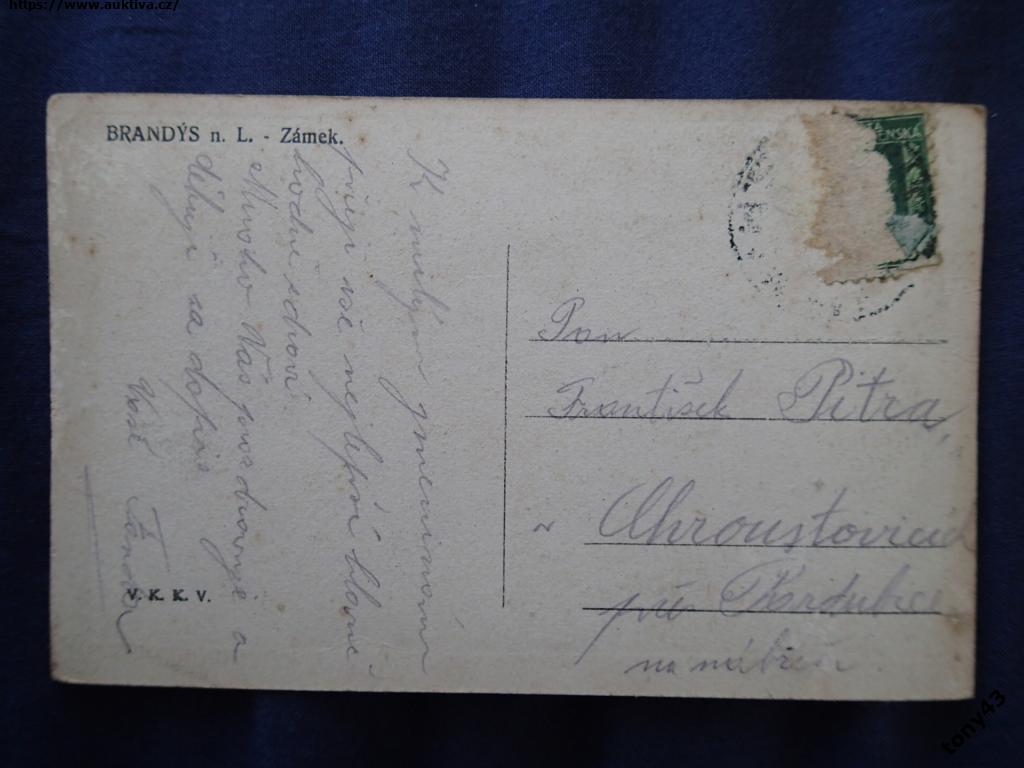 https://www.auktiva.cz/
BRANDÝS n. L. - Zámek.
K milým jmeninám
přeji vše nejlepší hlavně
hodně zdraví.
Mnoho Vás pozdravuje a
děkuje za dopis
Váš Fanda
V. K. K. V.
ENSKÁ
Pan
František Pitra,
v Chroustovicích
při Pardubice
na nábřeží.
tony43